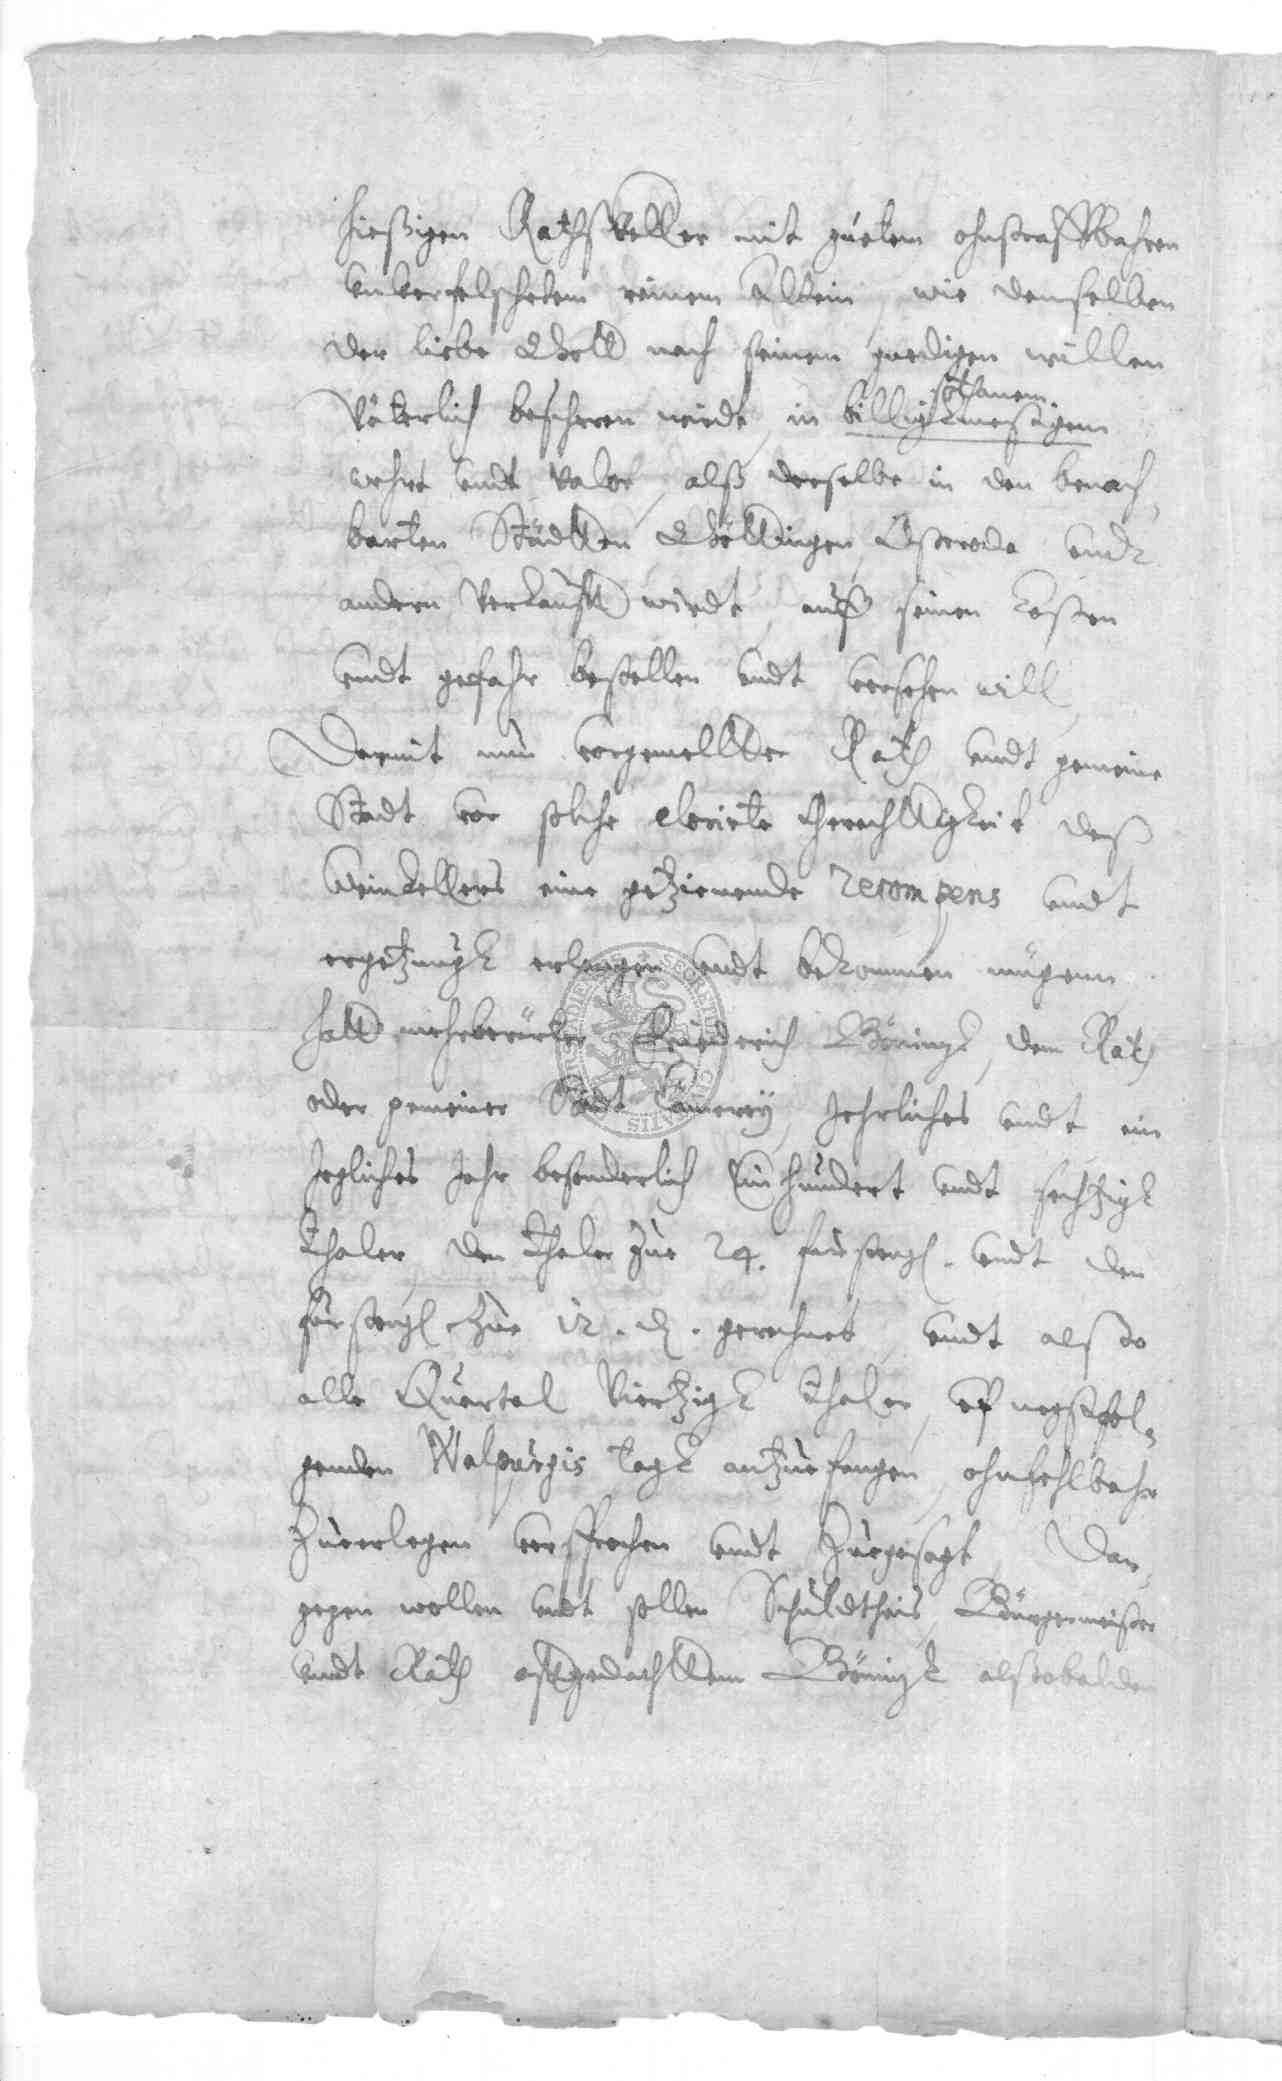 hießigen Rathskeller mit gutem ohnstraffbahren
unverfelschetem reinem Wein, wie denselben
der liebe Gott nach seinem gnedigen willen
Väterlich bescheren wirdt, in billigkmessigem
sothanem
wehrt undt valor, alß derselbe in den benach-
barten Städten Göttingen, Osteroda undt
andern verkaufft wirdt, auf seinen kosten
undt gefahr bestellen undt versehen will,
Damit nun vorgemellter Rath undt gemeine
Stadt vor solche Gerechtigkeit deß
Weinkellers eine geziemende recompens undt
ergetzungk erlangen undt bekommen mügenn
hatt mehrberürter Friederich Böningk, dem Rath
oder gemeiner Stadt Cämerey, Jehrliches undt ein
Jegliches Jahr besonderlich Einhundert undt sechtzigk
Thaler, den Thaler zue 24. fürstengl. undt den
fürstengl. zue 12. d. gerechnet, undt also
alle Quartal Viertzigk Thaler, uf negstfol-
genden Walpurgis Tagk antzuefangen, ohnfehlbahr
zuerlegen versprochen undt zuegesagt, Da-
gegen wollen undt sollen Schuldtheis, Bürgermeister
undt Rath offtgedachttem Böningk alsobalden
SECRETUM CIVITATIS